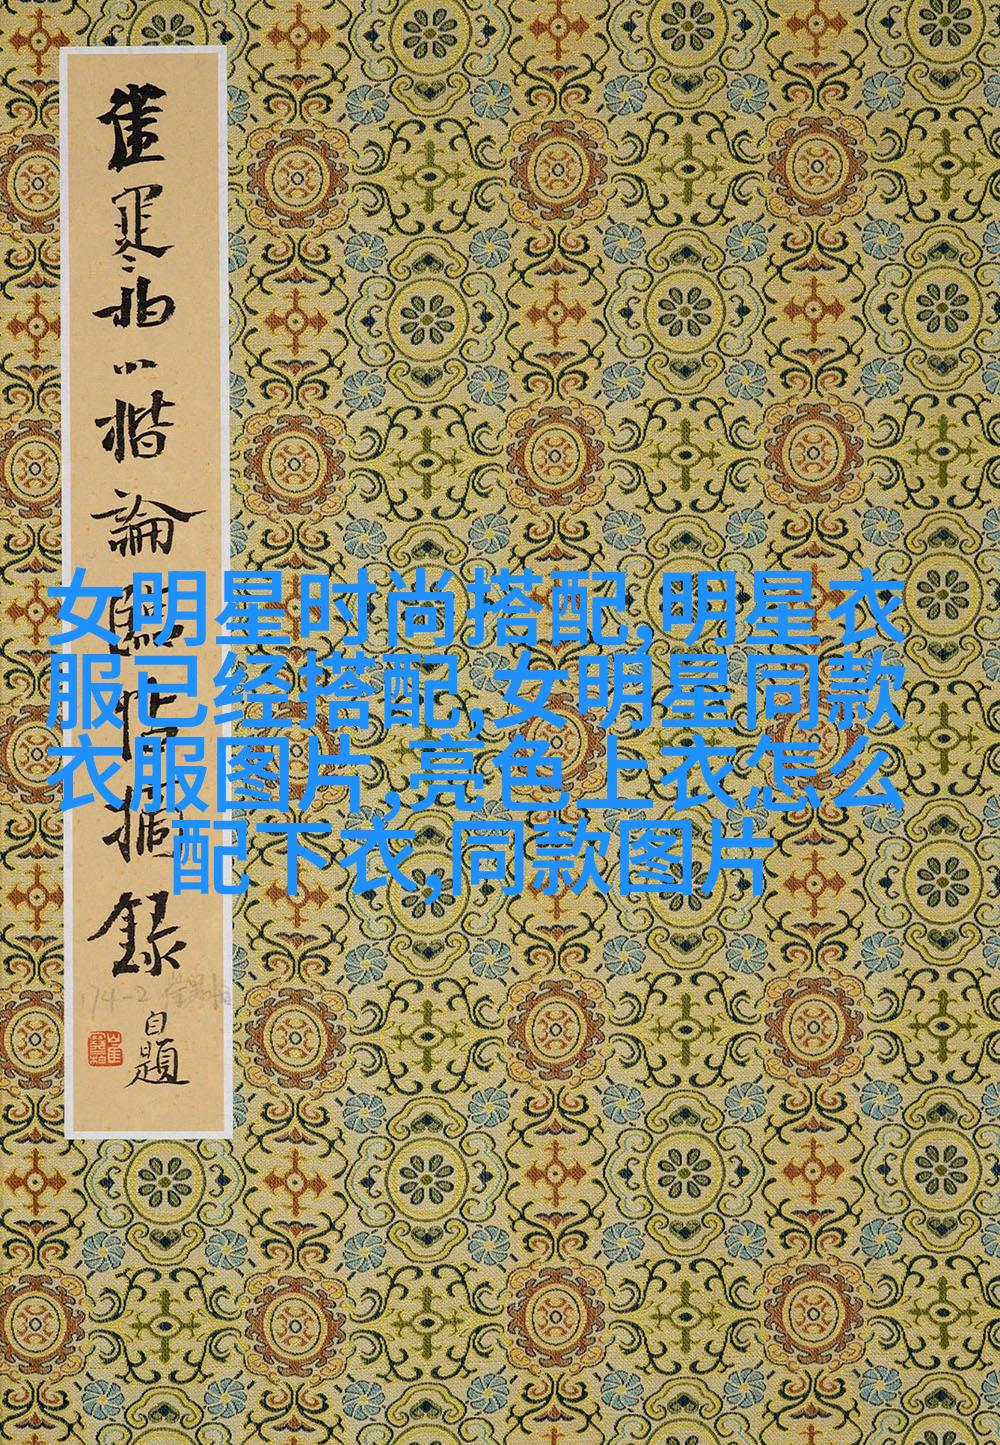 崔寒柏小楷論錄
自題
女明星时尚搭配,明星衣
服已经搭配,女明星同款
衣服图片,亮色上衣怎么
配下衣,同款图片